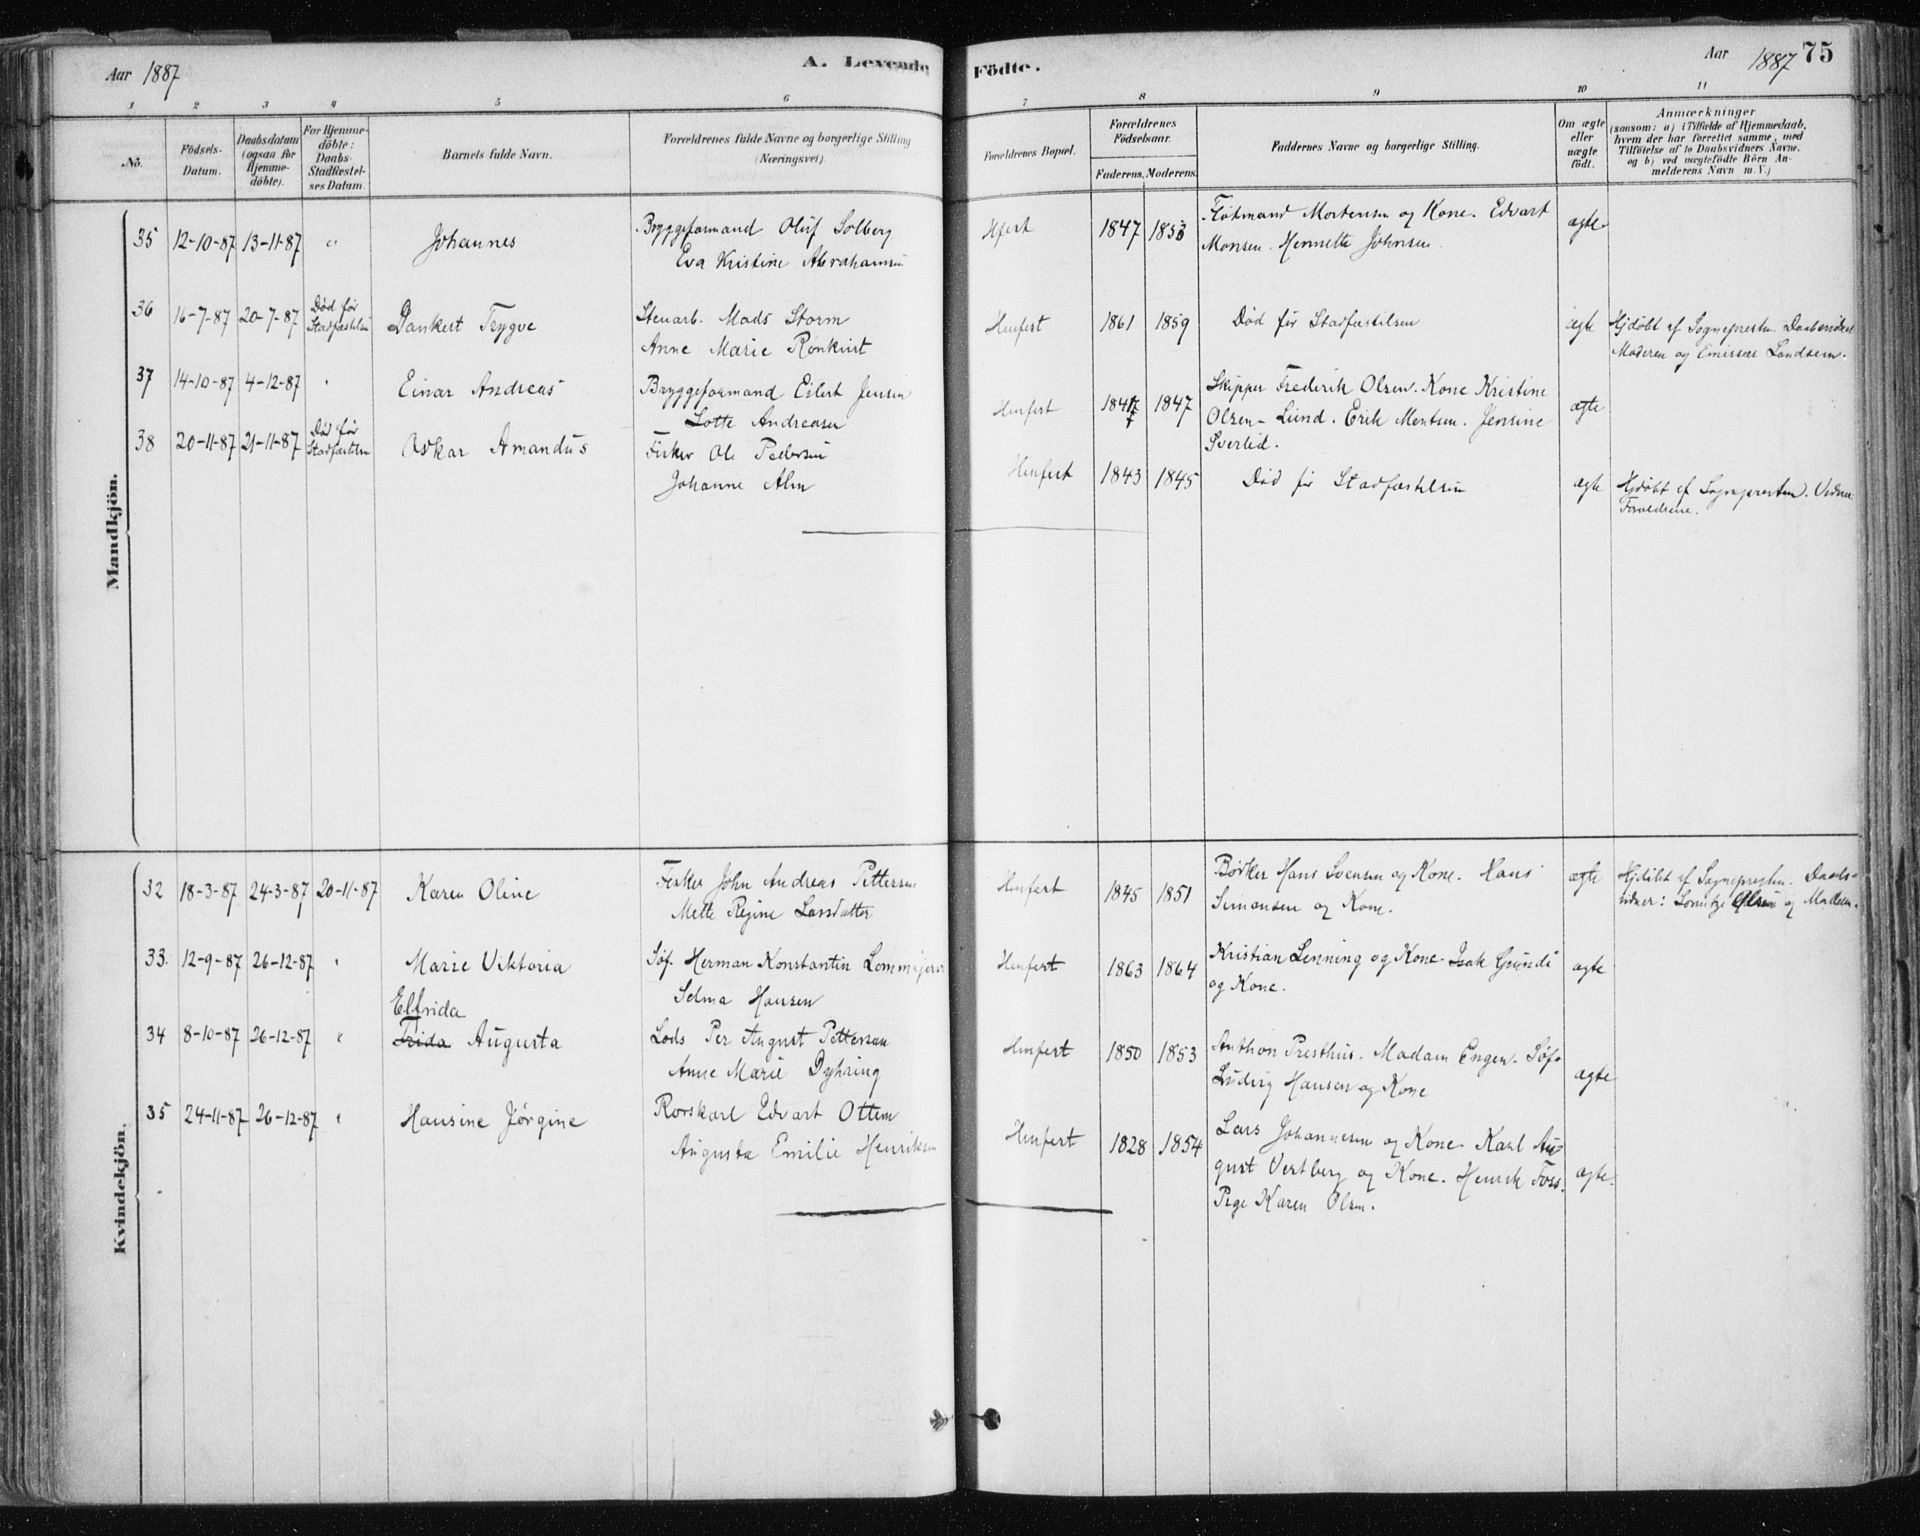 Aar 1887
A. Levende Födte.
Aar 1887 75
1 2 3 4 5 6 7 8 9 10 11
No.
Födsels-Datum.
Daabsdatum (ogsaa for Hjemmedöbte).
For Hjemmedöbte: Daabs-Stadfæstelses Datum
Barnets fulde Navn.
Forældrenes fulde Navne og borgerlige Stilling (Næringsvei).
Forældrenes Bopæl.
Forældrenes Födselsaar.
Faderens. Moderens.
Faddernes Navne og borgerlige Stilling.
Om ægte eller uægte födt.
Anmærkninger
(saasom: a) i Tilfælde af Hjemmedaab,
hvem der har forrettet samme, med
Tilföielse af to Daabsvidners Navne.
og b) ved uægtefödte Börn Anmelderens Navn m.V.)
Mandkjön.
35 12-10-87 13-11-87 " Johannes Bryggeformand Oluf Solberg 1847 1853 Fløtmand Mortensen og Kone. Edvart ægte
Eva Kristine Abrahamsen Monsen. Johnsen.
36 16-7-87 20-7-87 Død før Stadfæstelsen Bankert Trygve Stenarb. Mads Storm 1861 1859 Død før Stadfæstelsen ægte Hjdøbt af Sognepresten.
Anne Marie Rønkvist Moderen og Landsem.
37 14-10-87 4-12-87 " Einar Andreas Bryggeformand Eilert Jensen 1847 1847 Skipper Frederik Olsen. Kone Kristine ægte
Lotte Andreasen Olsen-Lund. Erik Mentsen. Jensine
Sverlid.
38 20-11-87 21-11-87 Død før Stadfæstelsen Oskar Amandus Fisker Ole Pedersen 1843 1845 Død før Stadfæstelsen ægte Hjdøbt af Sognepresten. Vidner
Johanne Alm Forældrene.
Kvindekjön.
32 18-3-87 24-3-87 20-11-87 Karen Oline Fisker John Andreas Pettersen 1845 1851 Bødker Hans Svensen og Kone. Hans ægte Hjdøbt af Sognepresten. Daabs-
Mette Regine Larsdatter Simonsen og Kone. vidner: Olsen og
33. 12-9-87 26-12-87 " Marie Viktoria Søf. Herman Konstantin 1863 1864 Kristian Lenning og Kone. Isak Gundi ægte
Selma Hansen og Kone.
Elfrida
34 8-10-87 26-12-87 " Frida Augusta Lods Per August Pettersen 1850 1853 Anthon Presthus. Madam Engen. Søf. ægte
Anne Marie Dyhring Ludvig Hansen og Kone
35 24-11-87 26-12-87 " Hansine Jørgine Rorskarl Edvart Ottem 1828 1854 Lars Johannesen og Kone. Karl Au- ægte.
Augusta Emilie Henriksen gust Vestberg og Kone. Henrik Foss.
Pige Karen Olsen.